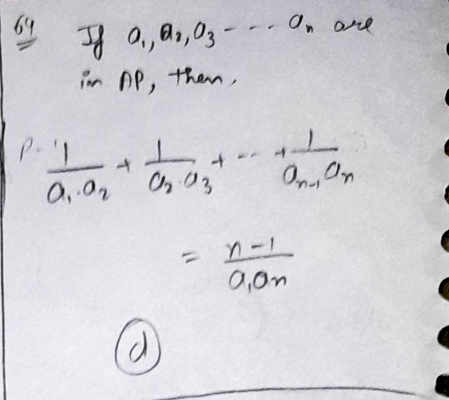 64 If a₁, a₂, a₃ - - - - aₙ are
in AP, then,
P. 1/a₁.a₂ + 1/a₂.a₃ + - - - + 1/aₙ₋₁ aₙ
= n-1/a₁aₙ
(d)